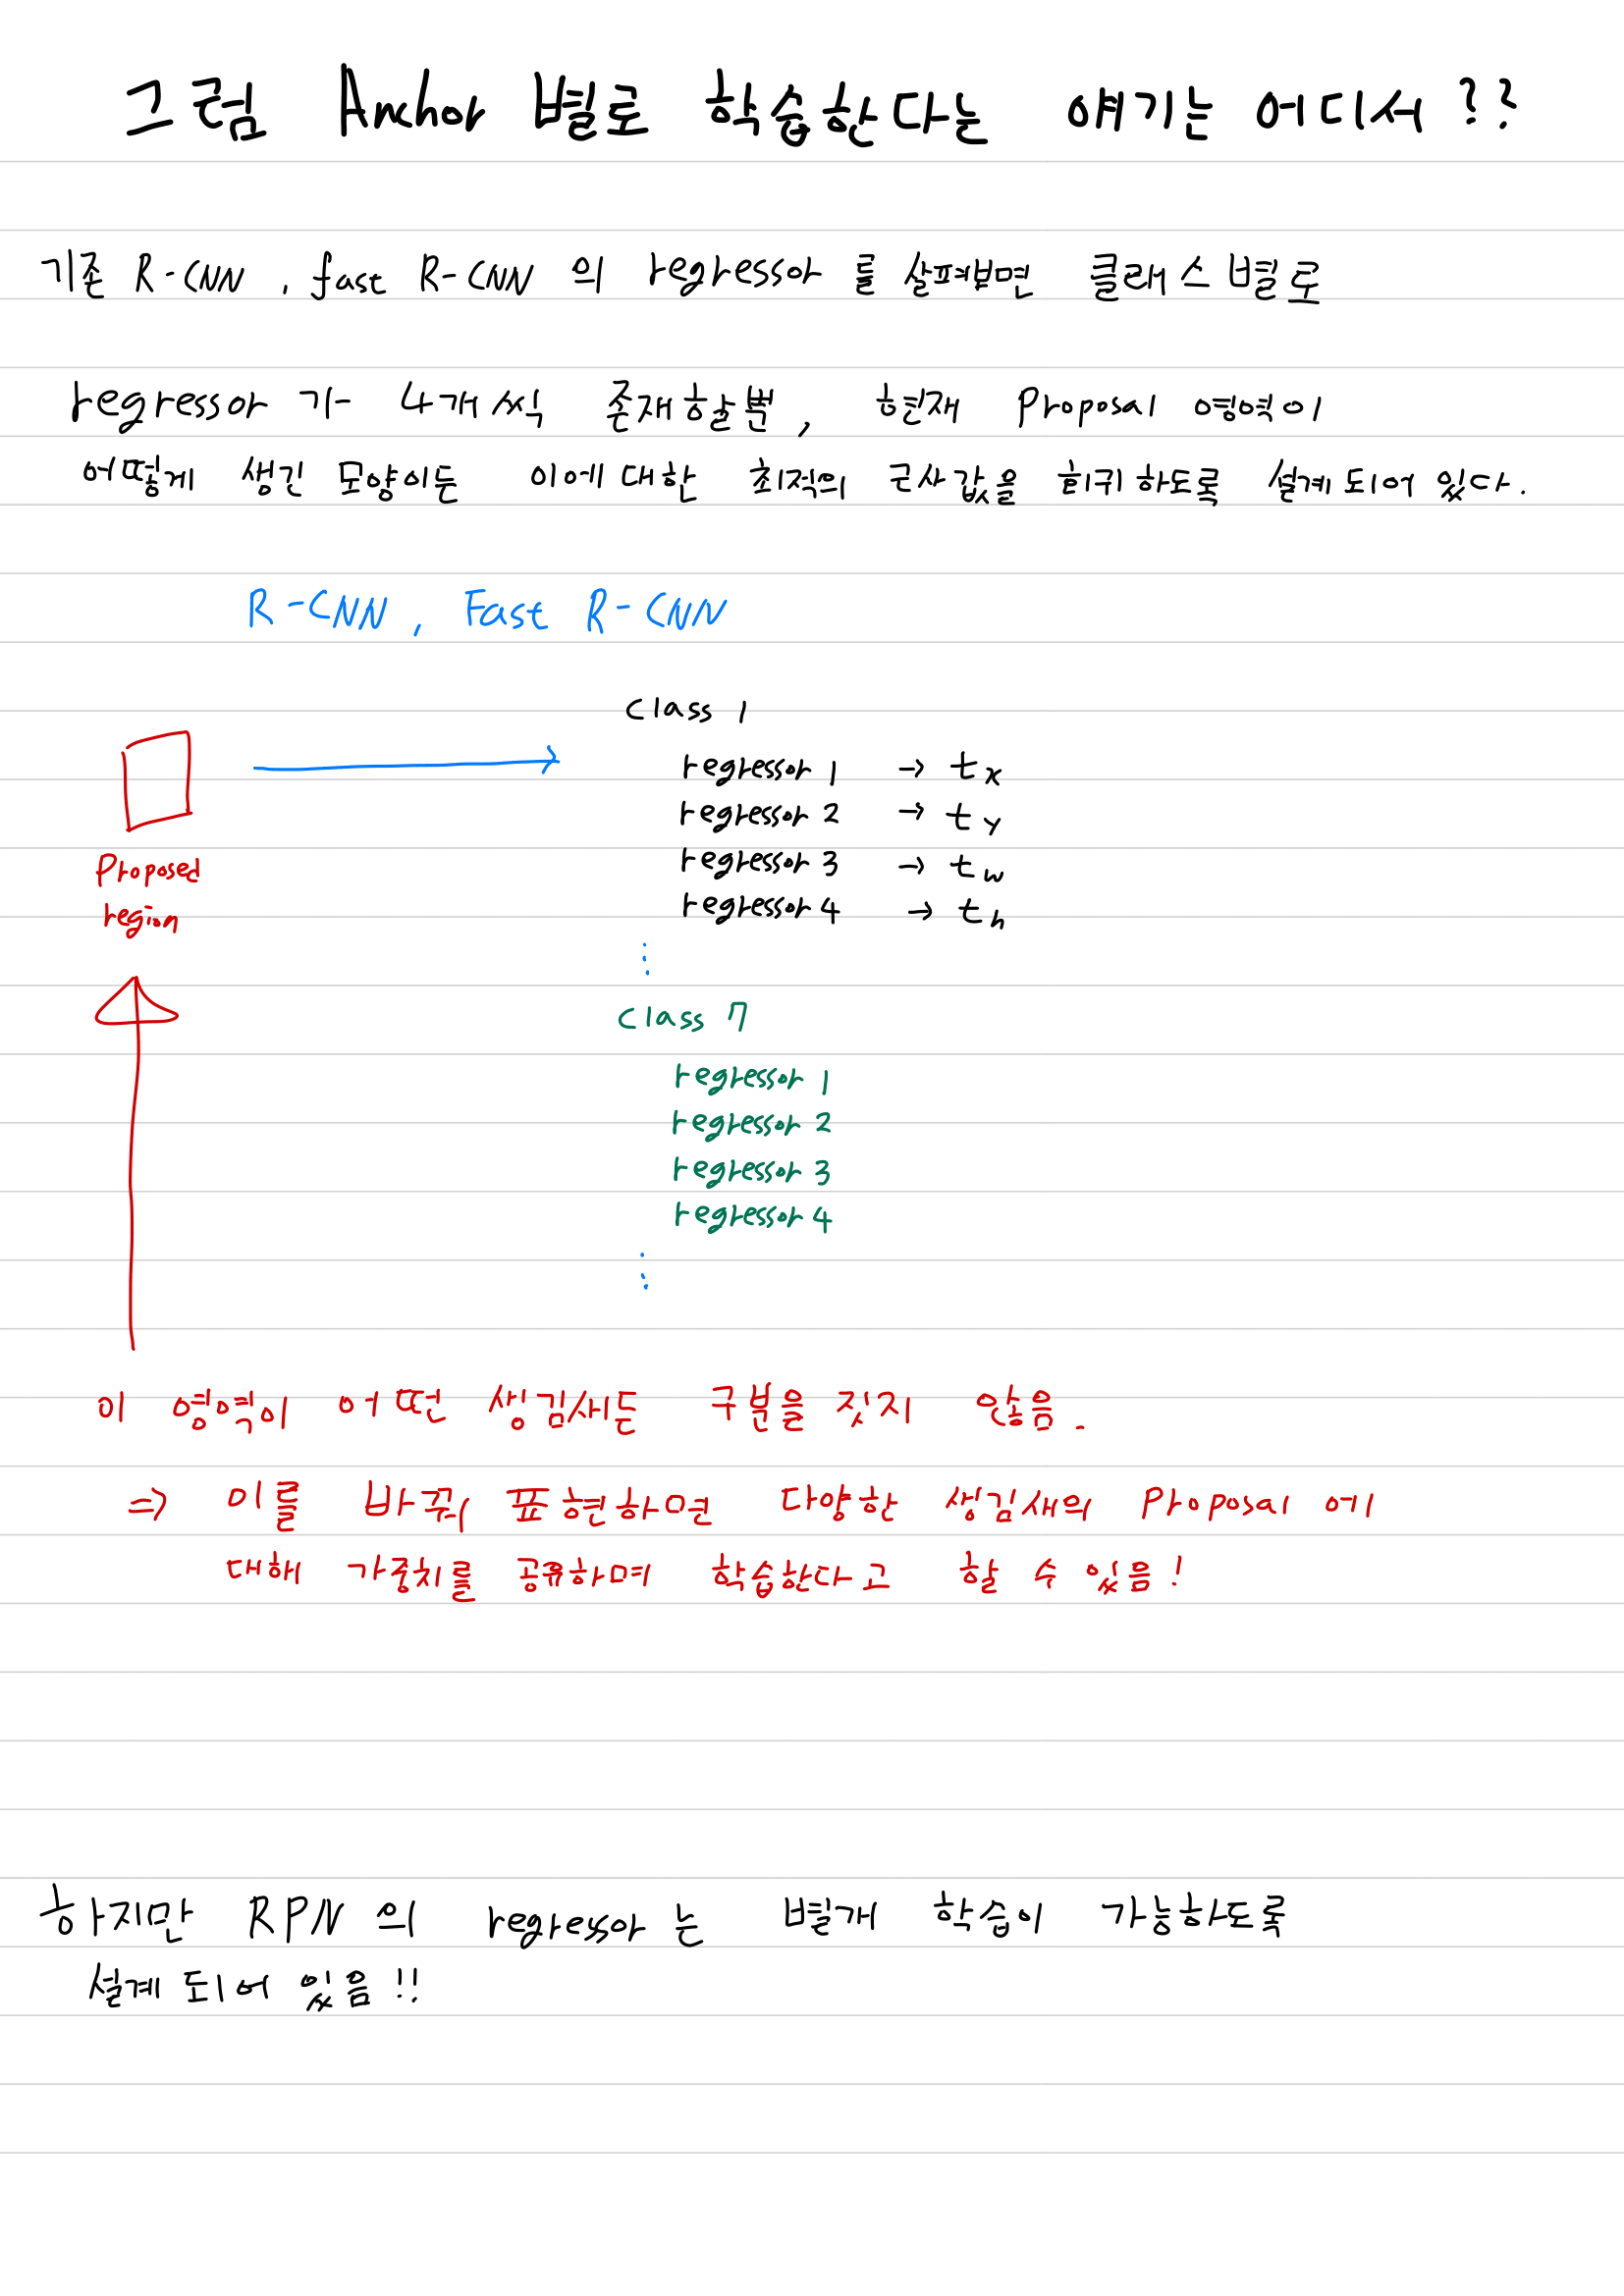 그럼 Anchor 별로 학습한다는 얘기는 어디서??
기존 R-CNN, fast R-CNN 의 regressor 를 살펴보면 클래스 별로
regressor 가 4개씩 존재할 뿐, 현재 Proposal 영역이
어떻게 생긴 모양이든 이에 대한 최적의 근사값을 회귀하도록 설계 되어 있다.
R-CNN, Fast R-CNN
class 1
regressor 1 → tx
regressor 2 → ty
regressor 3 → tw
regressor 4 → th
Proposed
region
class 7
regressor 1
regressor 2
regressor 3
regressor 4
이 영역이 어떤 생김새든 구분을 짓지 않음.
⇒ 이를 바꿔 표현하면 다양한 생김새의 Proposal 에
대해 가중치를 공유하며 학습한다고 할 수 있음!
하지만 RPN 의 regressor 는 별개 학습이 가능하도록
설계 되어 있음!!